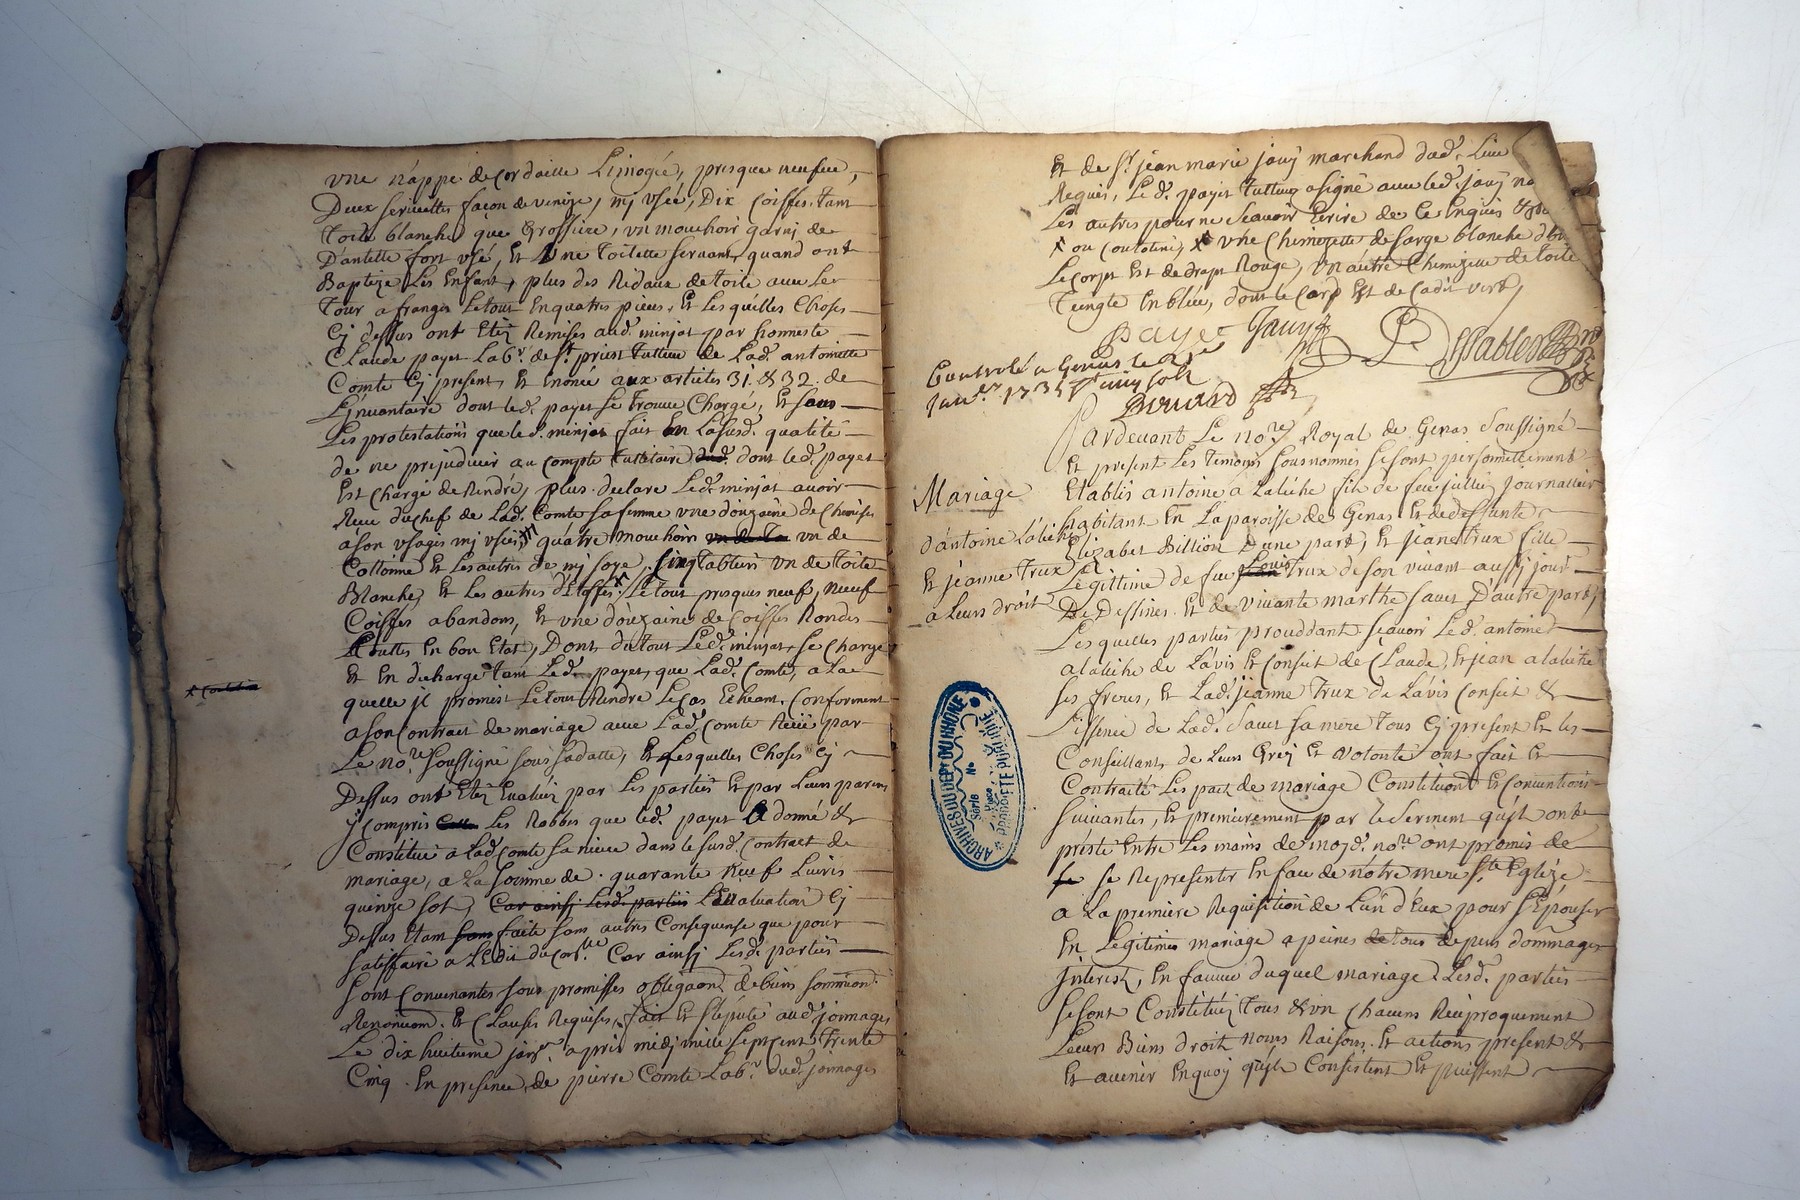 une náppe de Cordaille Limogée, presque neufve,
Deux serviettes façon de venize, mj usée, Dix Coiffes tam
toile blanche que Grossiere, un mouchoir garnj de
Dantelle fort usé, Et Une toilette servant quand ont
Baptize Les Enfant, plus des Ridaux de toile avec Les
tour a franges Le tout En quatres pieces, Et Les quelles Choses
Cj dessus ont Etéz Remises aud. minjat par honneste
Claude payet Labr. de St. priest tutteur de Lad. antoinette
Comte Cj present, Et Enoncé aux articles 31. & 32. de
L'jnvantaire dont led. payet se trouve Chargé, Et sans
Les protestations que led. minjat fait En Lasusd. qualité
de ne prejudicier au Compte tutélaire dont led. payet
Est Chargé de Rendre, plus declare Led. minjat avoir
Reçu du chef de Lad. Comte sa femme une douzaine de Chemises
à son usages mj usées, quátre mouchoirs un de
Cottonne Et Les autres de mj soye, sinq tabliers un de toile
Blanche, Et Les autres d'Etoffes x Le tout presques neuf, neuf
Coiffes abandons, Et une doúzaine de Coiffes Rondes
toutes En bon Etat, Dont du tout Led. minjat se Charge
Et En decharge tam Led. payet, que Lad. Comte, a La
quelle jl promest Le tout Rendre Le Cas Echeant, Conforment
a son Contract de mariage avec Lad. Comte Reçu par
Le nore. soussigné sous sa datte, Et Lesquelles Choses Cj
Dessus ont Etéz Evaluéz par Les partiés Et par Leurs parens
y Compris Les Robbes que led. payet A donné &
Constitué a Lad. Comte sa niece dans le susd. Contract de
mariage, a La somme de quarante neuf Livres
quinze sols, Car ainsj Lesd. parties L'Evaluation Cj
Dessus Etam faite sam autres Consequense que pour
satisfaire a L'Edit du Cont.lle Car ainsj Lesd. parties
sont Convenantes sous promisses obligaon. de biens sommiond.
Renonciaon. Et Clauses Requises, fait Et stipulé aud. jonnages
Le dix huitieme janvr. apres midj mille sept cent trente
Cinq. En presence de pierre Comte Labr. dud. jonnages
Et de Sr. jean marie jauÿ marchand dud. Lieu
Requis, Led. payet tutteur a signé avec led. jauÿ
Les autres pour ne sçavoir Ecrire de Ce Enquis &
x ou Coutoline, x une Chemizette de sarge blanche
Le Corps Est de drap Rouge, un autre Chemizette de toile
teingte En bleüe, dont le Corp Est de Cadis vert,
Payet Jauÿ
Controlé a Genas le
Janvr. 1735
Pardevant Le nore. Royal de Genas soussigné
Et present Les temoins sousnommés se sont personnellement
Etablis antoine a Laliche fils de feu jullien journallier
habitant En La paroisse de Genas Et de deffunte
Elizabet Billion D'une part, Et jeane trux fille
Legittime de feu Louis trux de son vivant aussj jour.
De Dessines Et de vivante marthe sauet D'autre part,
Mariage
d'antoine Laliche
Et jeanne trux
a Leurs droit
Les quelles parties procddant sçavoir Led. antoine
a laliche de L'avis Et Conseit de Claude, Et jean a laliche
ses freres, Et Lad. jeanne trux de L'avis Conseit &
Lissence de Lad. Sauet sa mere tous Cj present Et les
Conseillant, de Leurs Grej Et volonté ont fait Et
Contracté Les pact de mariage Constitution Et Conventions
suivantes, Et premierement par le serment qu'jls ont
prêsté Entre Les mains de moyd. nore. ont promis de
se Representer En face de nótre mere Ste. Eglize
a La premiere Requisition de L'un d'Eux pour s'Epouser
En Legitimes mariage a peines de tous depens dommages
Interest, En faveur duquel mariage Lesd. parties
se sont Constituéz tous & un Chacuns Reciproquement
Leurs Biens droit noms Raisons Et actions present &
Et avenir En quoy qu'jls Consistent Et puissent
ARCHIVES DU DEPT DU RHÔNE
Série No
PROPRIÉTÉ PUBLIQUE